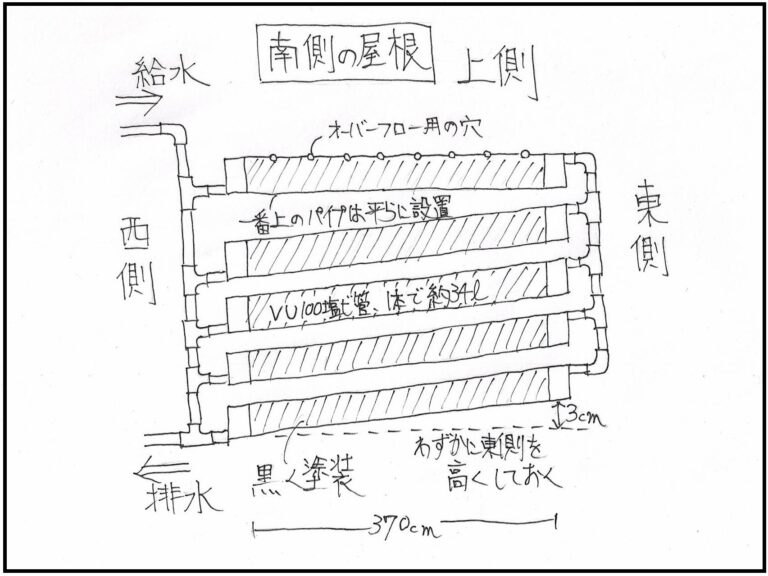 南側の屋根
上側
給水
オーバーフロー用の穴
西側
東側
一番上のパイプは平らに設置
VU100塩ビ管、1本で約34l
3cm
わずかに東側を
高くしておく
黒く塗装
排水
370cm